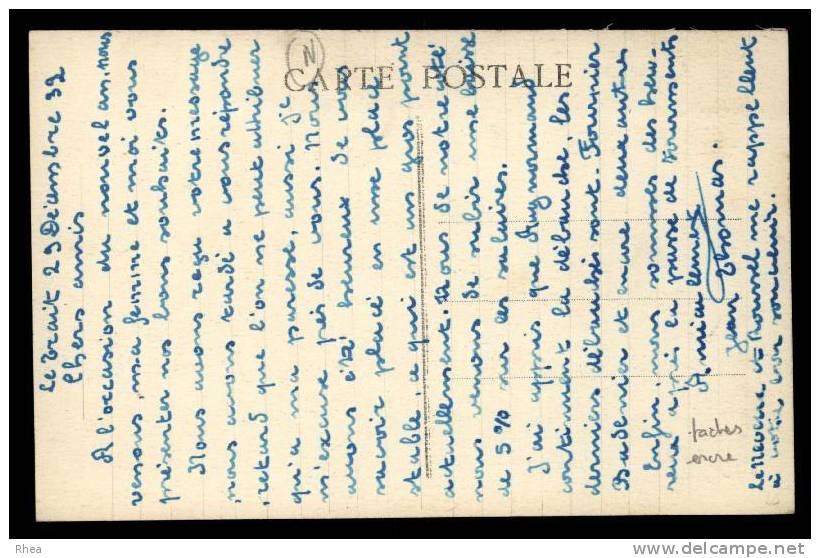 CARTE POSTALE
Le Trait 29 Décembre 32
Chers amis
A l'occasion du nouvel an, nous
venons, ma femme et moi vous
présenter nos bons souhaits.
Nous avons reçu votre message
nous avons tardé a vous répondre
retard que l'on ne peut attribuer
qu'a ma paresse, aussi je
m'excuse près de vous. Nous
avons été heureux de vous
savoir placé en une place
stable, ce qui est un gros point
actuellement. Nous de notre côté
nous venons de subir une baisse
de 5% sur les salaires.
J'ai appris que Duy normand
continuent la débauche, les
derniers débauchés sont Fournier
et encore deux autres
Enfin, nous sommes des heu-
reux après la passe de
Amicalement
Jean Thomas.
me rappellent
à votre bon souvenir.
taches
encre
Rhea
www.delcampe.net